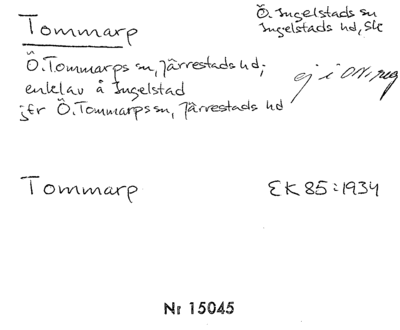 Tommarp
Ö. Ingelstads sn
Ingelstads hd, Sk
Ö. Tommarps sn, Järrestads hd;
enklav å Ingelstad
jfr Ö. Tommarps sn, Järrestads hd
ej i ON.reg
Tommarp EK 85:1934
Nr 15045